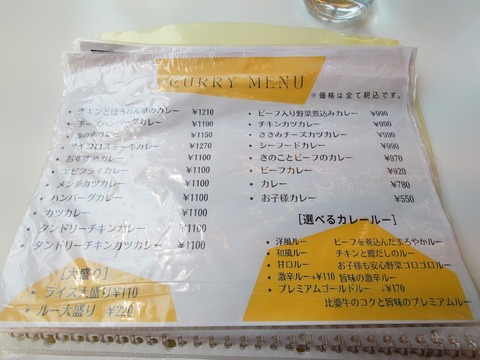 CURRY MENU
※価格は全て税込です。
・チキンとほうれん草のカレー ¥1210
・チーズハンバーグカレー ¥1190
¥1150
・サイコロステーキカレー ¥1270
・おすすめカレー ¥1100
・エビフライカレー ¥1100
・メンチカツカレー ¥1100
・ハンバーグカレー ¥1100
・カツカレー ¥1100
・タンドリーチキンカレー ¥1100
・タンドリーチキンカツカレー ¥1100
[大盛り]
・ライス大盛り¥110
・ルー大盛り ¥220
・ビーフ入り野菜煮込みカレー ¥990
・チキンカツカレー ¥990
・ささみチーズカツカレー ¥990
・シーフードカレー ¥990
・きのことビーフのカレー ¥970
・ビーフカレー ¥920
・カレー ¥780
・お子様カレー ¥550
[選べるカレールー]
・洋風ルー ビーフを煮込んだまろやかルー
・和風ルー チキンと鰹だしのルー
・甘口ルー お子様も安心野菜ゴロゴロルー
・激辛ルー+¥110 旨味の激辛ルー
・プレミアムゴールドルー +¥170
比婆牛のコクと旨味のプレミアムルー